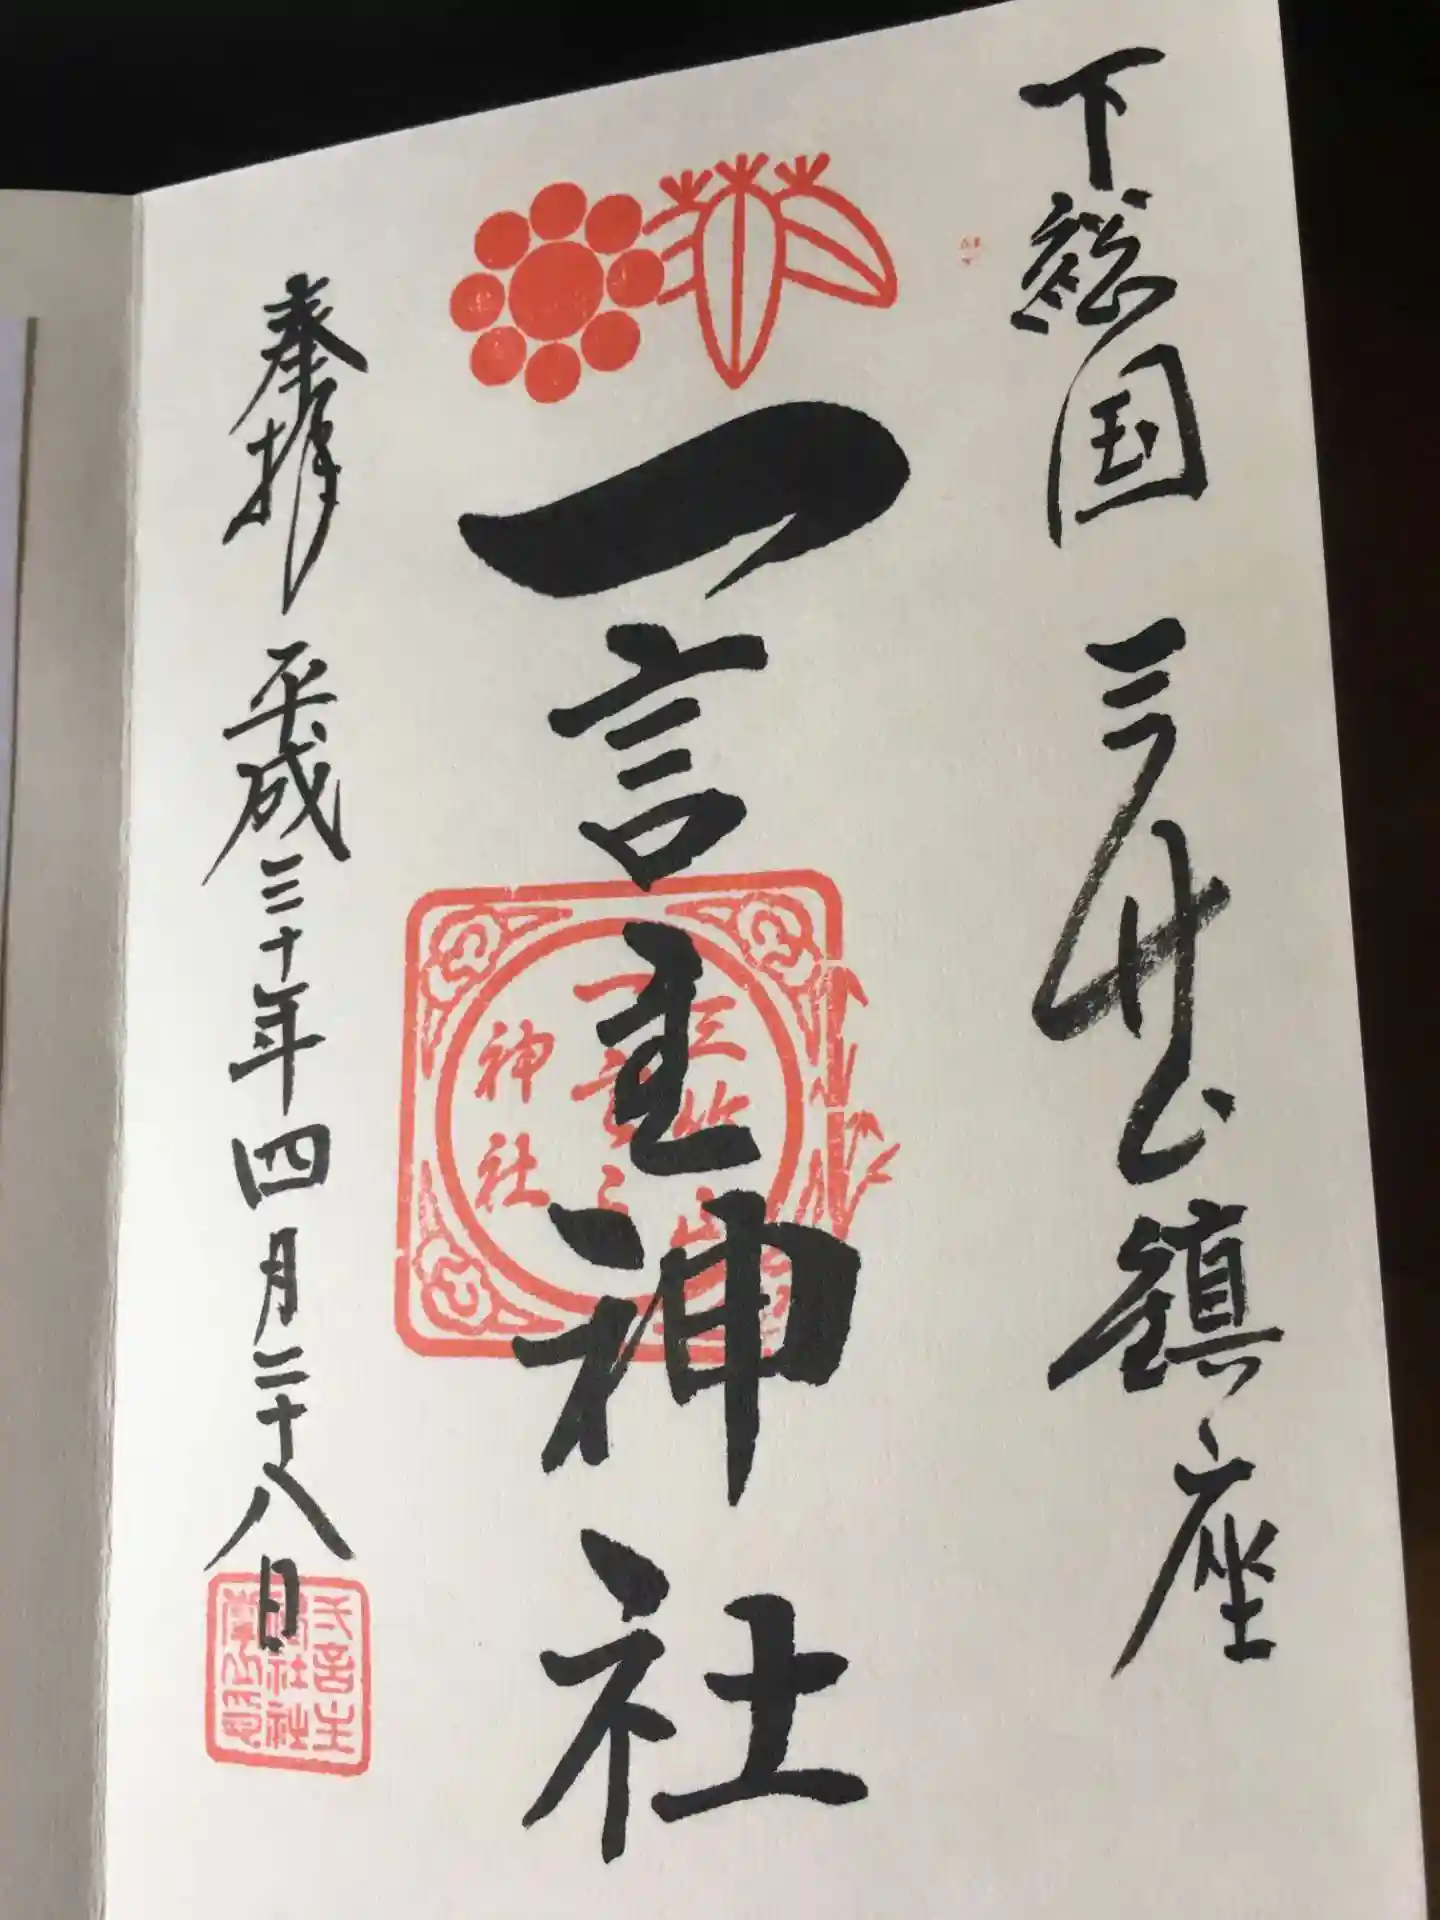 下総国 三竹山鎮座
一言主神社
三竹山
一言主
神社
奉拝 平成三十年四月二十八日
一言主
神社社
掌之印